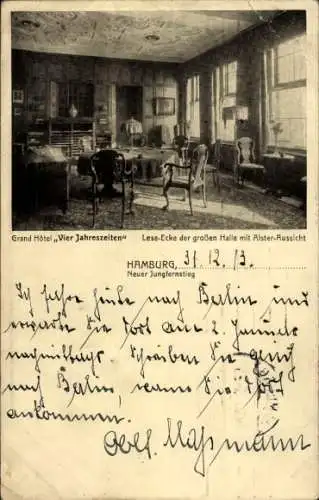 Grand Hôtel „Vier Jahreszeiten“ Lese-Ecke der großen Halle mit Alster-Aussicht
HAMBURG, 31.12.13.
Neuer Jungfernstieg
Ich fahre heute nach Berlin und
erwarte Sie dort am 2. Januar
nachmittags. Schreiben Sie
nach Berlin, wann Sie dort
ankommen.